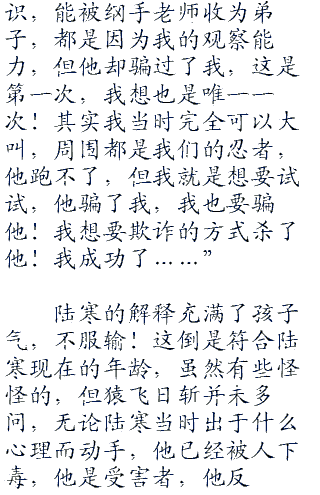 识，能被纲手老师收为弟
子，都是因为我的观察能
力，但他却骗过了我，这是
第一次，我想也是唯一一
次！其实我当时完全可以大
叫，周围都是我们的忍者，
他跑不了，但我就是想要试
试，他骗了我，我也要骗
他！我想要欺诈的方式杀了
他！我成功了……”
陆寒的解释充满了孩子
气，不服输！这倒是符合陆
寒现在的年龄，虽然有些怪
怪的，但猿飞日斩并未多
问，无论陆寒当时出于什么
心理而动手，他已经被人下
毒，他是受害者，他反